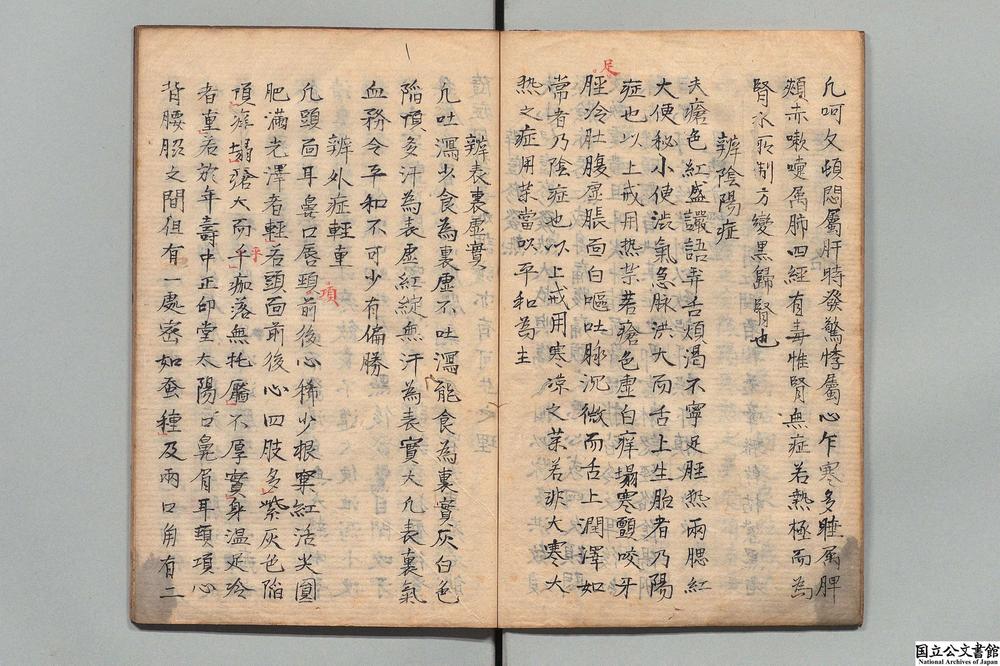 凡呵欠頓悶屬肝時發驚悸屬心乍寒多睡属脾
頰赤嗽嚏属肺四經有毒惟腎無症若熱極而為
腎水所制方變黑歸腎也
辨陰陽症
夫瘡色紅盛譫語弄舌煩渴不寧足脛热兩腮紅
大便秘小便澁氣急脉洪大而舌上生胎者乃陽
症也以上戒用热藥若瘡色虚白痒塌寒顫咬牙
足
脛冷肚腹虚脹面白嘔吐脉沉微而舌上潤澤如
常者乃陰症也以上戒用寒凉之藥若非大寒大
热之症用藥當以平和為主
辨表裏虚實
凢吐瀉少食為裏虚不吐瀉能食為裏實灰白色
陷頂多汗為表虚紅綻無汗為表實大凢表裏氣
血務令平和不可少有偏勝
辨外症輕重
凢頭面耳鼻口唇頸前後心稀少根窠紅活尖圓
項
肥滿光澤者輕若頭面前後心四肢多紫灰色陷
頂痒塌發大而千痂落無托靨不厚實身温足冷
乎
者重若於年壽中正印堂太陽口鼻眉耳頸項心
背腰脇之間但有一處密如蚕種及兩口角有二
国立公文書館
National Archives of Japan